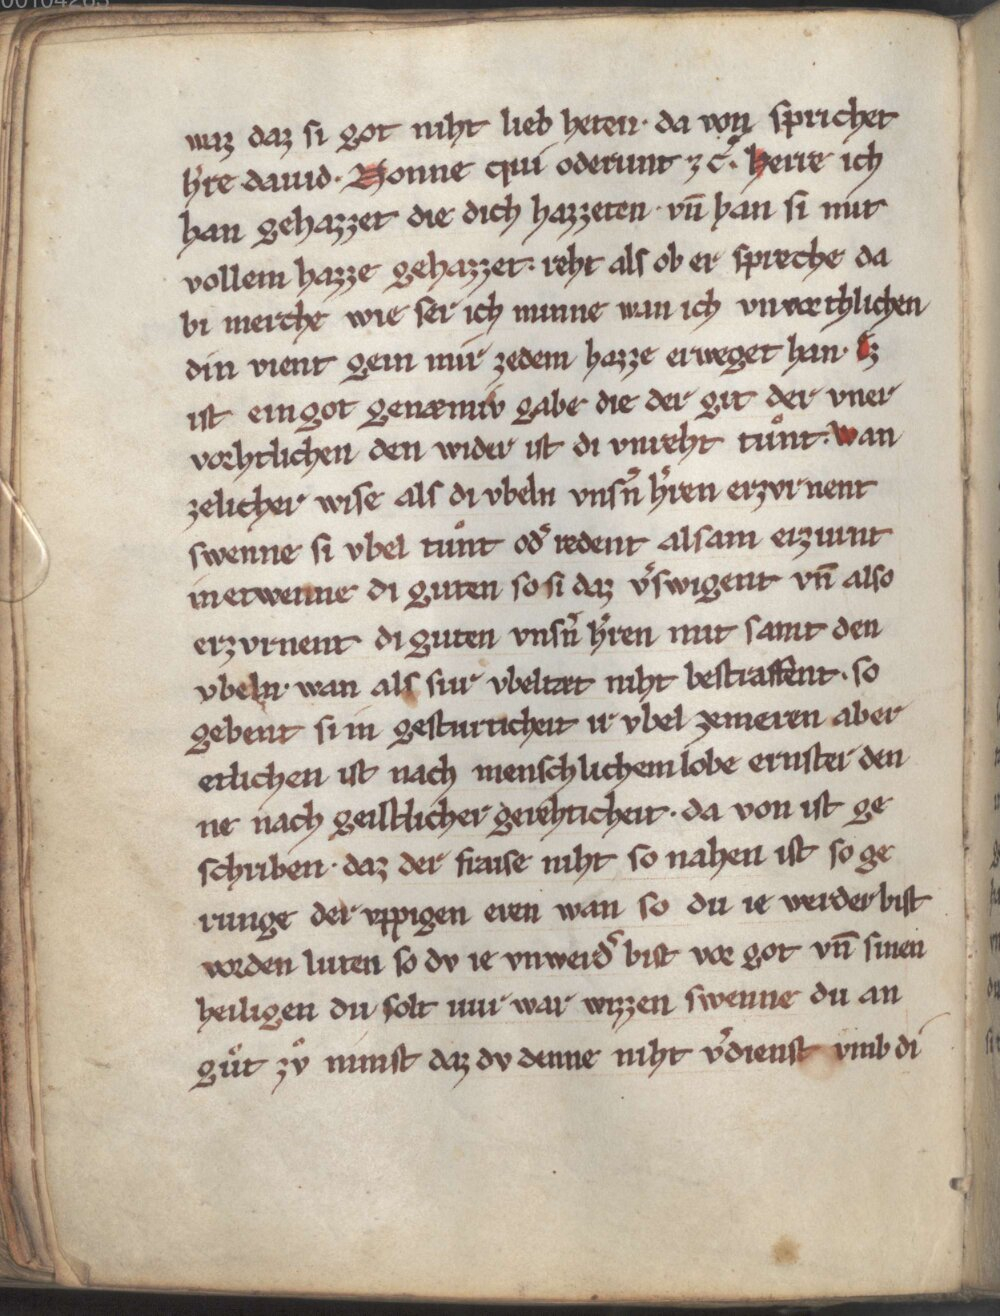 00104285
waz daz si got niht lieb heten · da von sprichet
h̾re dauid · Nonne qui oderunt ⁊ c̾ · Herre ich
han gehazzet die dich hazzeten · vn̄ han si mit
vollem hazze gehazzet · reht als ob er spreche da
bi merche wie ser ich minne wan ich vnvorchlichen
din vient gein mir zedem hazze erweget han · Ez
ist ein got genæmiv gabe die der git der vner
vorhtlichen den wider ist di vnreht tuͦnt · Wan
zelicher wise als di vbeln vnsn̾ h̾ren erzvrnent
swenne si vbel tuͦnt od̾ redent alsam erzurnt
in etwenne di guten so si daz v̾swigent vn̄ also
erzvrnent di guten vnsn̾ h̾ren mit samt den
vbeln · wan als siu vbeltæt niht bestraffent · so
gebent si in gesturticheit ir vbel zemeren aber
etlichen ist nach menschlichem lobe ernster den
ne nach geistlicher gerehticheit · da von ist ge
schriben · daz der fraise niht so nahen ist so ge
runge der vppigen eren wan so du ie werder bist
vorden luten so dv ie vnwerd̾ bist vor got vn̄ sinen
heiligen du solt mir war wizzen swenne du an
guͦt zvͦ nimst daz dv denne niht v̾dienst vmb di